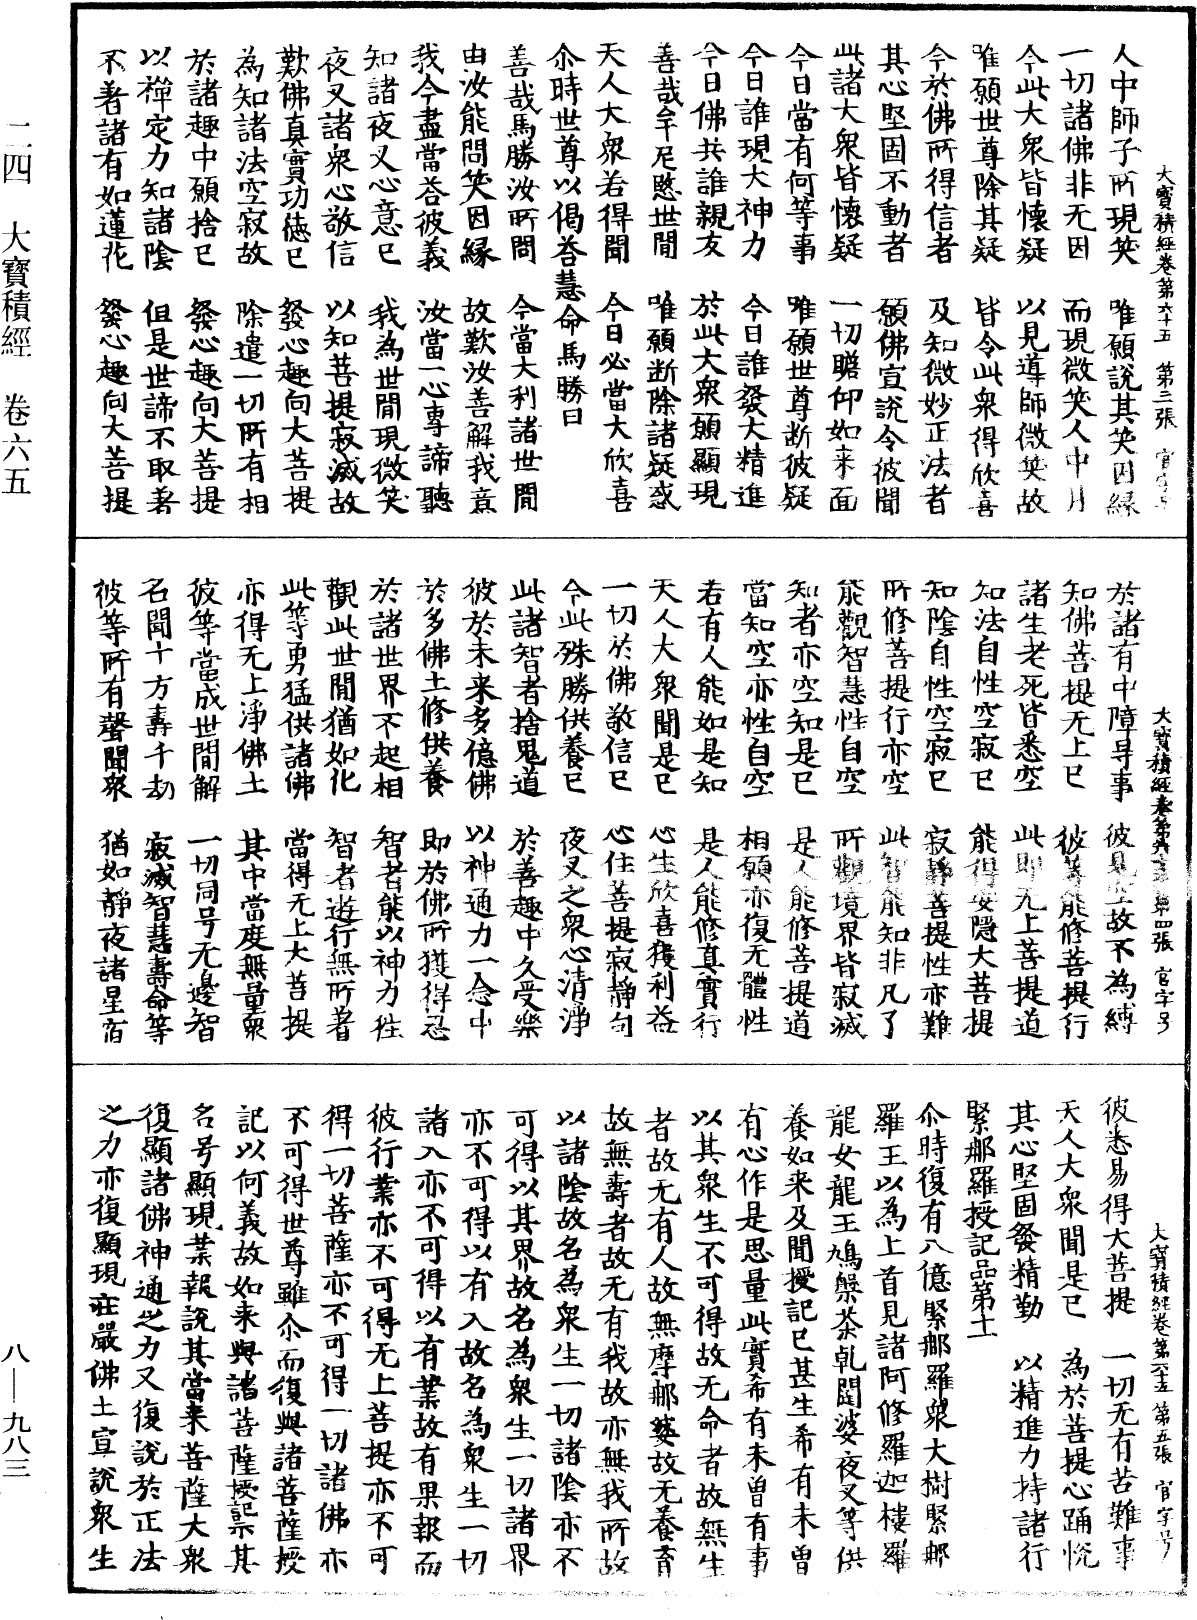 大寶積經卷第六十五　第三張　官字号
人中師子所現笑　唯願說其笑因緣
一切諸佛非无因　而現微笑人中月
今此大衆皆懷疑　以見導師微笑故
唯願世尊除其疑　皆令此衆得欣喜
今於佛所得信者　及知微妙正法者
其心堅固不動者　願佛宣說令彼聞
此諸大衆皆懷疑　一切瞻仰如来面
今日當有何等事　唯願世尊斷彼疑
今日誰現大神力　今日誰發大精進
今日佛共誰親友　於此大衆願顯現
善哉牟尼愍世間　唯願断除諸疑惑
天人大衆若得聞　今日必當大欣喜
尒時世尊以偈荅慧命馬勝曰
善哉馬勝汝所問　今當大利諸世間
由汝能問笑因緣　故歎汝善解我意
我今盡當荅彼義　汝當一心專諦聽
知諸夜叉心意已　我為世間現微笑
夜叉諸衆心敬信　以知菩提寂滅故
歎佛真實功德已　發心趣向大菩提
為知諸法空寂故　除遣一切所有相
於諸趣中願捨已　發心趣向大菩提
以禪定力知諸陰　但是世諦不取著
不著諸有如蓮花　發心趣向大菩提
大寶積經卷第六十五　第四張　官字号
於諸有中障㝵事　彼見空故不為縛
知佛菩提无上已　彼等能修菩提行
諸生老死皆悉空　此即无上菩提道
知法自性空寂已　能得安隱大菩提
知陰自性空寂已　寂靜菩提性亦難
所修菩提行亦空　此智能知非凡了
能觀智慧性自空　所觀境界皆寂滅
知者亦空知是已　是人能修菩提道
當知空亦性自空　相願亦復无體性
若有人能如是知　是人能修真實行
天人大衆聞是已　心生欣喜獲利益
一切於佛敬信已　心住菩提寂靜句
今此殊勝供養已　夜叉之衆心清淨
此諸智者捨鬼道　於善趣中久受樂
彼於未来多億佛　以神通力一念中
於多佛土修供養　即於佛所獲得忍
於諸世界不起相　智者能以神力往
觀此世間猶如化　智者遊行無所著
此等勇猛供諸佛　當得无上大菩提
亦得无上淨佛土　其中當度無量衆
彼等當成世間解　一切同号无邊智
名聞十方壽千劫　寂滅智慧壽命等
彼等所有聲聞衆　猶如靜夜諸星宿
大寶積經卷第六十五　第五張　官字号
彼悉易得大菩提　一切无有苦難事
天人大衆聞是已　為於菩提心踊悅
其心堅固發精勤　以精進力持諸行
緊那羅授記品第十一
尒時復有八億緊那羅衆大樹緊那
羅王以為上首見諸阿修羅迦樓羅
龍女龍王鳩槃荼乾闥婆夜叉等供
養如来及聞授記已甚生希有未曾
有心作是思量此實希有未曾有事
以其衆生不可得故无命者故無生
者故无有人故無摩那婆故无養育
故無壽者故无有我故亦無我所故
以諸陰故名為衆生一切諸陰亦不
可得以其界故名為衆生一切諸界
亦不可得以有入故名為衆生一切
諸入亦不可得以有業故有果報而
彼行業亦不可得无上菩提亦不可
得一切菩薩亦不可得一切諸佛亦
不可得世尊雖尒而復與諸菩薩授
記以何義故如来與諸菩薩授記其
名号顯現業報說其當来菩薩大衆
復顯諸佛神通之力又復說於正法
之力亦復顯現莊嚴佛土宣說衆生
二四　大寶積經　卷六五　八—九八三